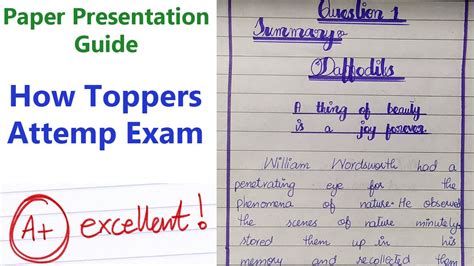 Paper Presentation
Guide
How Toppers
Attemp Exam
A+ excellent!
Question 1
Summary
Daffodils
A thing of beauty
is a joy forever
William Wordsworth had a
penetrating eye for the
phenomena of nature. He observed
the scenes of nature minutely
stored them up in his
memory and recollected them